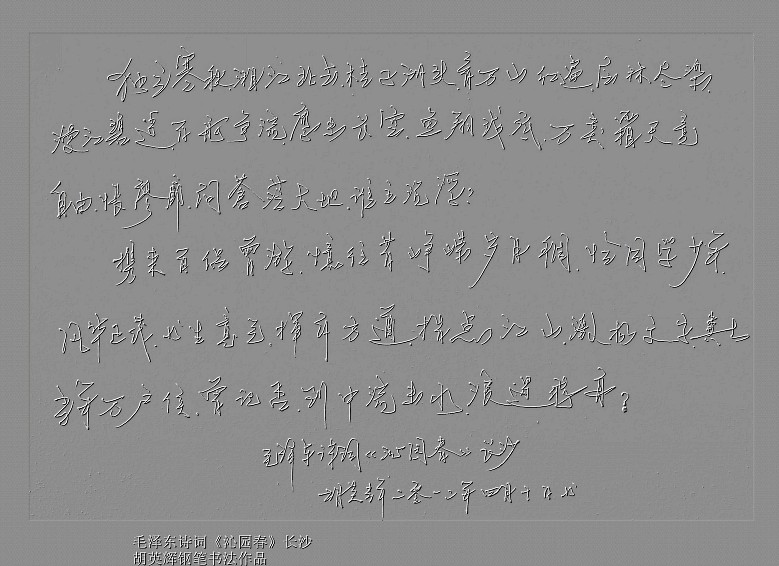 独立寒秋,湘江北去,橘子洲头,看万山红遍,层林尽染,
漫江碧透,百舸争流,鹰击长空,鱼翔浅底,万类霜天竞
自由,怅寥廓,问苍茫大地,谁主沉浮?
携来百侣曾游,忆往昔峥嵘岁月稠,恰同学少年
风华正茂,书生意气,挥斥方遒,指点江山,激扬文字,粪土
当年万户侯,曾记否,到中流击水,浪遏飞舟?
毛泽东诗词《沁园春》长沙
胡英辉二零一二年四月十八书
毛泽东诗词《沁园春》长沙
胡英辉钢笔书法作品